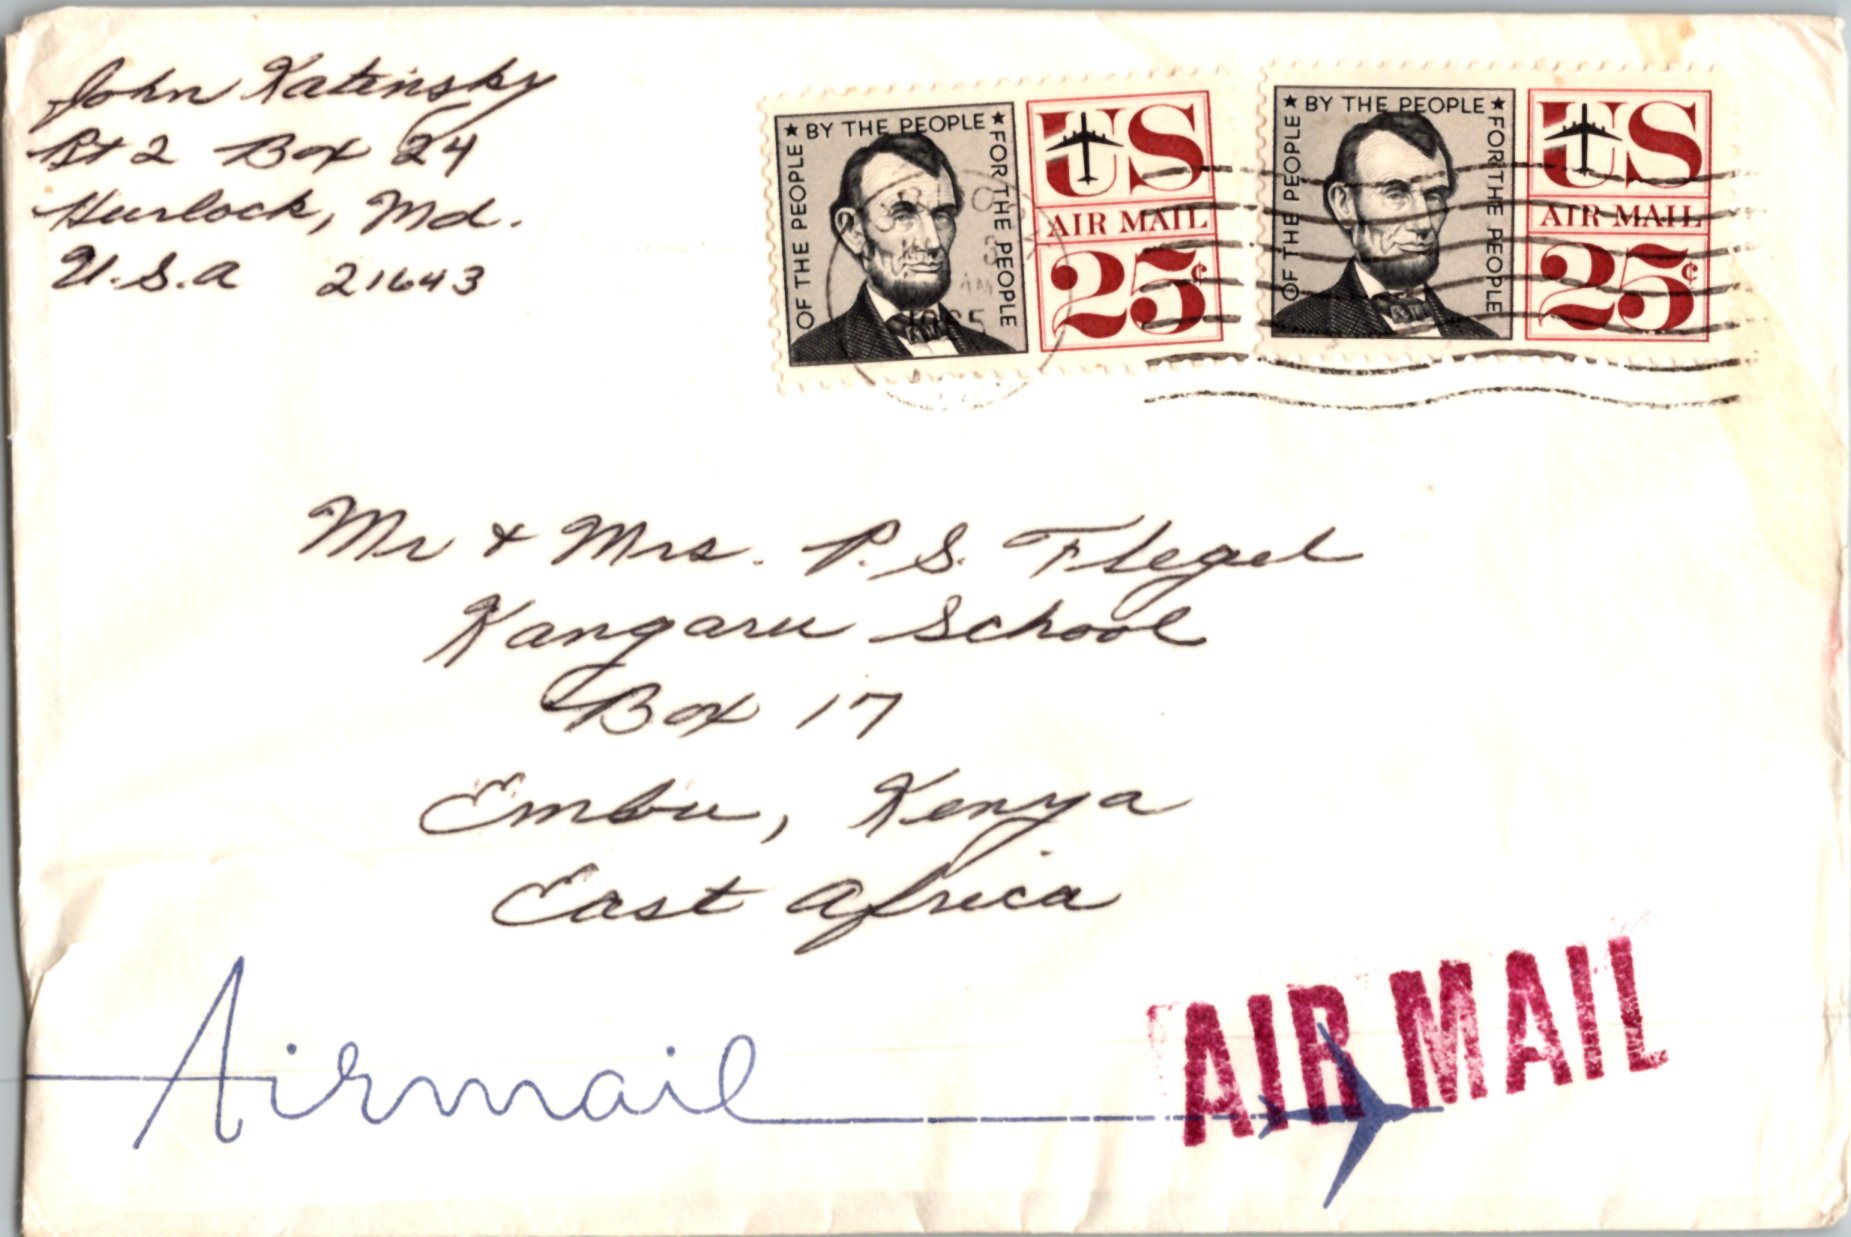 John Katinsky
Rt 2 Box 24
Hurlock, Md.
U.S.A 21643
OF THE PEOPLE ★ BY THE PEOPLE ★ FOR THE PEOPLE
US
AIR MAIL
25¢
OF THE PEOPLE ★ BY THE PEOPLE ★ FOR THE PEOPLE
US
AIR MAIL
25¢
1965
Mr & Mrs. P. S. Flegel
Kangaru School
Box 17
Embu, Kenya
East Africa
Airmail
AIR MAIL